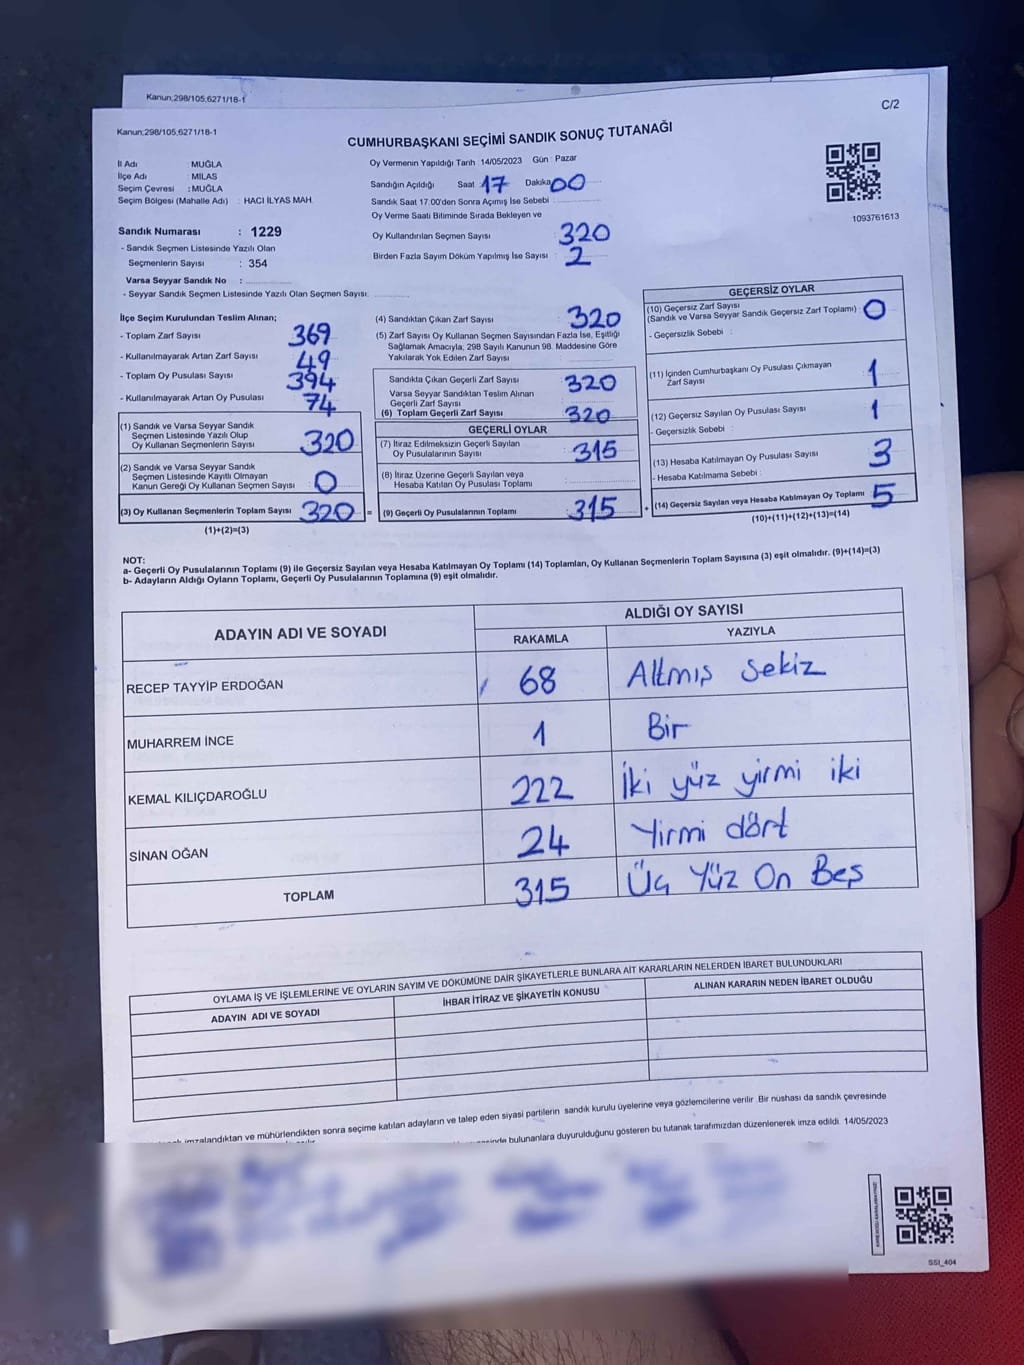 Kanun;298/105;6271/18-1
Kanun;298/105;6271/18-1
C/2
CUMHURBAŞKANI SEÇİMİ SANDIK SONUÇ TUTANAĞI
İl Adı : MUĞLA
İlçe Adı : MİLAS
Seçim Çevresi : MUĞLA
Seçim Bölgesi (Mahalle Adı) : HACI İLYAS MAH.
Sandık Numarası : 1229
- Sandık Seçmen Listesinde Yazılı Olan
Seçmenlerin Sayısı : 354
Varsa Seyyar Sandık No :
- Seyyar Sandık Seçmen Listesinde Yazılı Olan Seçmen Sayısı:
Oy Vermenin Yapıldığı Tarih : 14/05/2023 Gün : Pazar
Sandığın Açıldığı Saat 17 Dakika 00
Sandık Saat 17.00'den Sonra Açımış İse Sebebi :
Oy Verme Saati Bitiminde Sırada Bekleyen ve
Oy Kullandırılan Seçmen Sayısı : 320
Birden Fazla Sayım Döküm Yapılmış İse Sayısı : 2
1093761613
İlçe Seçim Kurulundan Teslim Alınan;
- Toplam Zarf Sayısı : 369
- Kullanılmayarak Artan Zarf Sayısı : 49
- Toplam Oy Pusulası Sayısı : 394
- Kullanılmayarak Artan Oy Pusulası : 74
(1) Sandık ve Varsa Seyyar Sandık
Seçmen Listesinde Yazılı Olup
Oy Kullanan Seçmenlerin Sayısı : 320
(2) Sandık ve Varsa Seyyar Sandık
Seçmen Listesinde Kayıtlı Olmayan
Kanun Gereği Oy Kullanan Seçmen Sayısı : 0
(3) Oy Kullanan Seçmenlerin Toplam Sayısı : 320
(1)+(2)=(3)
=
(4) Sandıktan Çıkan Zarf Sayısı : 320
(5) Zarf Sayısı Oy Kullanan Seçmen Sayısından Fazla İse, Eşitliği
Sağlamak Amacıyla, 298 Sayılı Kanunun 98. Maddesine Göre
Yakılarak Yok Edilen Zarf Sayısı :
Sandıkta Çıkan Geçerli Zarf Sayısı : 320
Varsa Seyyar Sandıktan Teslim Alınan
Geçerli Zarf Sayısı :
(6) Toplam Geçerli Zarf Sayısı : 320
GEÇERLİ OYLAR
(7) İtiraz Edilmeksizin Geçerli Sayılan
Oy Pusulalarının Sayısı : 315
(8) İtiraz Üzerine Geçerli Sayılan veya
Hesaba Katılan Oy Pusulası Toplamı :
(9) Geçerli Oy Pusulalarının Toplamı : 315
+
GEÇERSİZ OYLAR
(10) Geçersiz Zarf Sayısı
(Sandık ve Varsa Seyyar Sandık Geçersiz Zarf Toplamı) : 0
- Geçersizlik Sebebi :
(11) İçinden Cumhurbaşkanı Oy Pusulası Çıkmayan
Zarf Sayısı : 1
(12) Geçersiz Sayılan Oy Pusulası Sayısı : 1
- Geçersizlik Sebebi :
(13) Hesaba Katılmayan Oy Pusulası Sayısı : 3
- Hesaba Katılmama Sebebi :
(14) Geçersiz Sayılan veya Hesaba Katılmayan Oy Toplamı : 5
(10)+(11)+(12)+(13)=(14)
NOT:
a- Geçerli Oy Pusulalarının Toplamı (9) ile Geçersiz Sayılan veya Hesaba Katılmayan Oy Toplamı (14) Toplamları, Oy Kullanan Seçmenlerin Toplam Sayısına (3) eşit olmalıdır. (9)+(14)=(3)
b- Adayların Aldığı Oyların Toplamı, Geçerli Oy Pusulalarının Toplamına (9) eşit olmalıdır.
ADAYIN ADI VE SOYADI
ALDIĞI OY SAYISI
RAKAMLA YAZIYLA
RECEP TAYYİP ERDOĞAN 68 Altmış sekiz
MUHARREM İNCE 1 Bir
KEMAL KILIÇDAROĞLU 222 İki yüz yirmi iki
SİNAN OĞAN 24 Yirmi dört
TOPLAM 315 Üç Yüz On Beş
OYLAMA İŞ VE İŞLEMLERİNE VE OYLARIN SAYIM VE DÖKÜMÜNE DAİR ŞİKAYETLERLE BUNLARA AİT KARARLARIN NELERDEN İBARET BULUNDUKLARI
ADAYIN ADI VE SOYADI İHBAR İTİRAZ VE ŞİKAYETİN KONUSU ALINAN KARARIN NEDEN İBARET OLDUĞU
imzalandıktan ve mühürlendikten sonra seçime katılan adayların ve talep eden siyasi partilerin sandık kurulu üyelerine veya gözlemcilerine verilir. Bir nüshası da sandık çevresinde
bulunanlara duyurulduğunu gösteren bu tutanak tarafımızdan düzenlenerek imza edildi. 14/05/2023
SSI_404